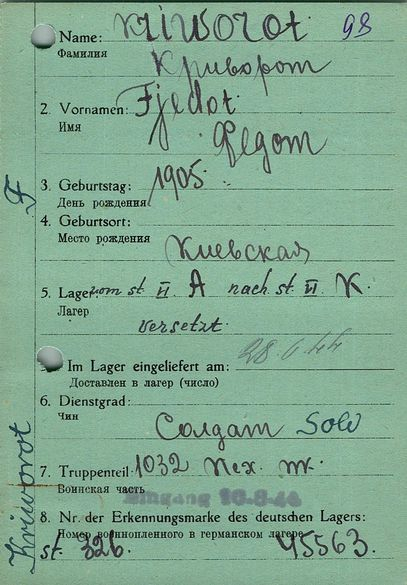 Name: Kriworot 98
Фамилия
Криворот
2. Vornamen: Fjedot
Имя
Федот
3. Geburtstag: 1905
День рождения
4. Geburtsort:
Место рождения
Киевская
5. Lager vom st. VI. A nach st. VI K.
Лагерь
versetzt.
Im Lager eingeliefert am: 28.6.44
Доставлен в лагерь (число)
6. Dienstgrad:
Чин
Солдат Sold
7. Truppenteil: 1032
Воинская часть
Eingang
8. Nr. der Erkennungsmarke des deutschen Lagers:
Номер военнопленного в германском лагере
st. 326 45563.
F
Kriworot